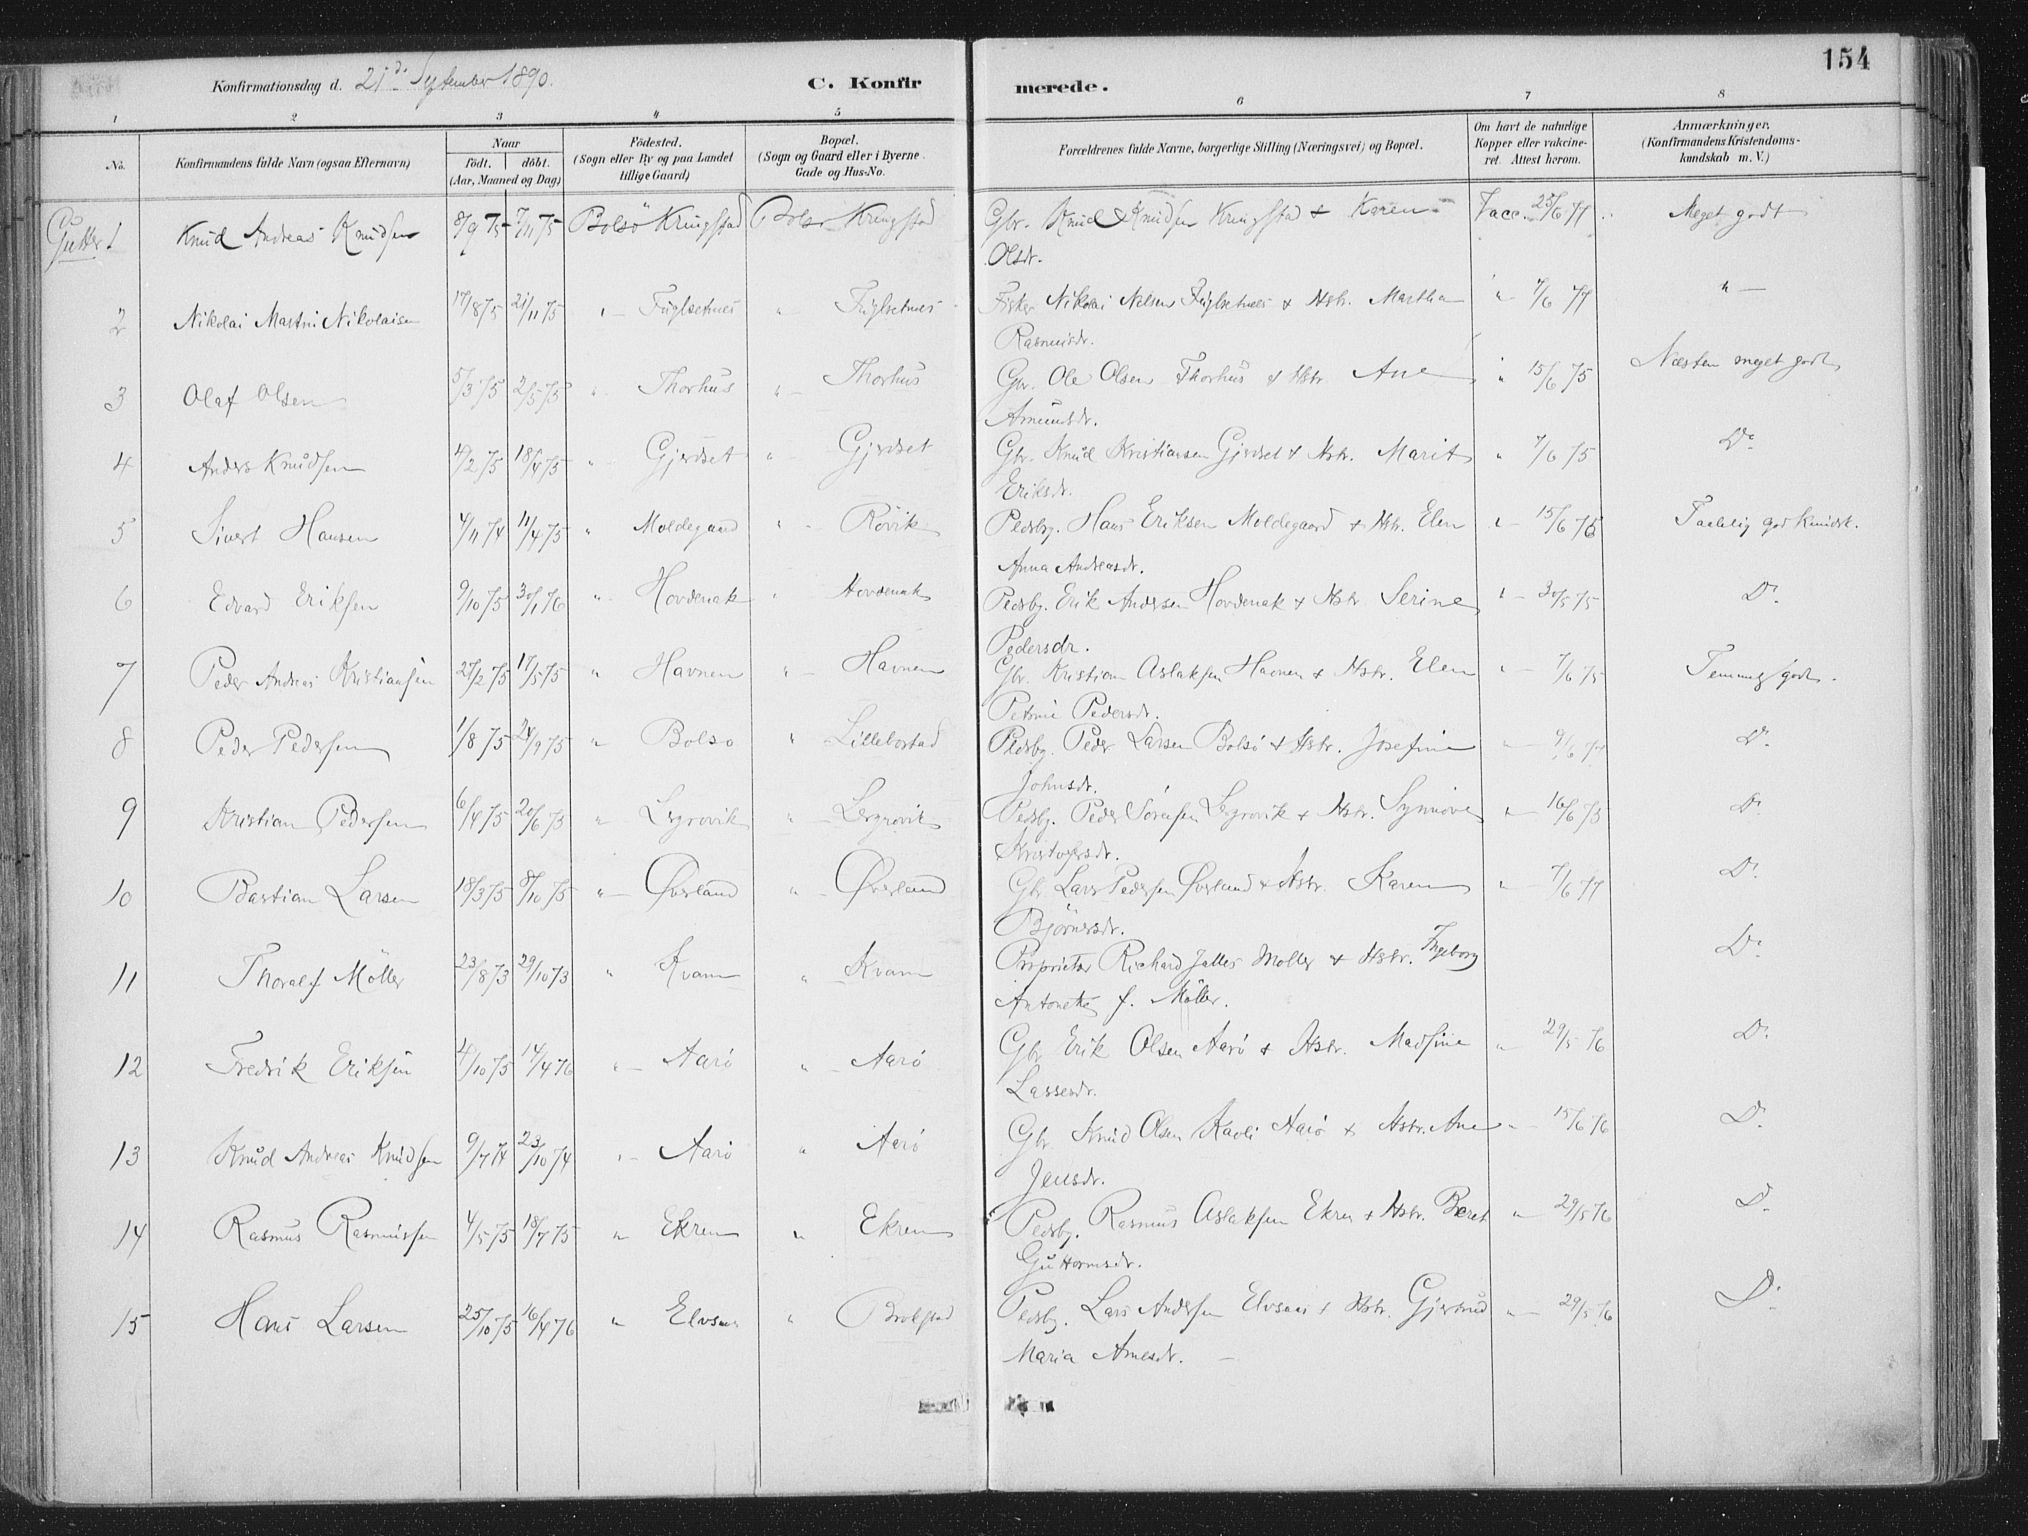 154
Konfirmationsdag d. 21de September 1890. C. Konfirmerede.
1 2 3 4 5 6 7 8
No. Konfirmandens fulde Navn (ogsaa Efternavn) Naar födt. döbt. (Aar, Maaned og Dag) Födested. (Sogn eller By og paa Landet tillige Gaard) Bopæl. (Sogn og Gaard eller i Byerne Gade og Hus-No. Forældrenes fulde Navne, borgerlige Stilling (Næringsvei) og Bopæl. Om havt de naturlige Kopper eller vakcineret. Attest herom. Anmærkninger. (Konfirmandens Kristendomskundskab m. V.)
Gutter 1 Knud Andreas Knudsen 8/9 75 7/11 75 Bolsö Kringstad Bolsö Kringstad Gbr. Knud Knudsen Kringstad & Karen Vacc. 25/6 77 Meget godt
Olsdr.
2 Nikolai Martin Nikolaisen 17/8 75 21/11 75 " Fuglsetnes " Fuglsetnes Fisker Nikolai Nelsen Fuglsetnes & Hstr. Martha " 7/6 77 "
Rasmusdr.
3 Olaf Olsen 5/3 75 2/5 75 " Thorhus " Thorhus Gbr. Ole Olsen Thorhus & Hstr Ane " 15/6 75 Næsten meget godt
Amundsdr.
4 Anders Knudsen 4/2 75 18/4 75 " Gjerdset " Gjerdset Gbr. Knud Kristiansen Gjerdset & Hstr. Marit " 7/6 75 Do
Eriksdr.
5 Sivert Hansen 4/11 74 11/4 75 " Moldegaard " Røvik Pldsby. Hans Eriksen Moldegaard & Hstr. Elen " 15/6 75 Taalelig god kundsk.
Anna Andreasdr.
6 Edvard Eriksen 9/10 75 30/1 76 " Hovdenak " Hovdenak Pldsby. Erik Andersen Hovdenak & Hstr Serine " 30/5 75 Do
Pedersdr.
7 Peder Andreas Kristiansen 27/2 75 17/5 75 " Havnen " Havnen Gbr. Kristian Aslaksen Havnen & Hstr. Elen " 7/6 75 Temmelig godt.
Petrine Pedersdr.
8 Peder Pedersen 1/8 75 24/9 75 " Bolsö " Lillebostad Pldsby. Peder Larsen Bolsö & Hstr. Josefine " 9/6 77 Do
Johnsdr.
9 Kristian Pedersen 6/4 75 20/6 75 " Lergrovik " Lergrovik Pldsby. Peder Sörensen Lergrovik & Hstr. Synnöve " 16/6 75 Do
Kristofersdr.
10 Bastian Larsen 18/3 75 8/10 75 " Øverland " Øverland Gbr Lars Pedersen Øverland & Hstr. Karen " 7/6 77 Do
Bjørnersdr.
11 Thoralf Möller 23/8 73 29/10 73 " Kvam " Kvam Proprietær Richard Jalles Møller & Hstr. Ingeborg Do
Antonette f. Möller.
12 Fredrik Eriksen 4/10 75 14/4 76 " Aarø " Aarø Gbr Erik Olsen Aarø & Hstr. Madsine " 29/5 76 Do
Lassesdr.
13 Knud Andreas Knudsen 9/7 74 23/10 74 " Aarø " Aarø Gbr. Knud Olsen Kavli Aarø & Hstr. Ane " 15/6 76 Do
Jensdr.
14 Rasmus Rasmussen 4/5 75 18/7 75 " Ekren " Ekren Pldsby. Rasmus Aslaksen Ekren & Hstr. Beret " 29/5 76 Do
Guttormsdr.
15 Hans Larsen 25/10 75 16/4 76 " Elvsaas " Brolstad Pldsby. Lars Andersen Elvsaas & Hstr. Gjertrud " 29/5 76 Do
Maria Arnesdr.